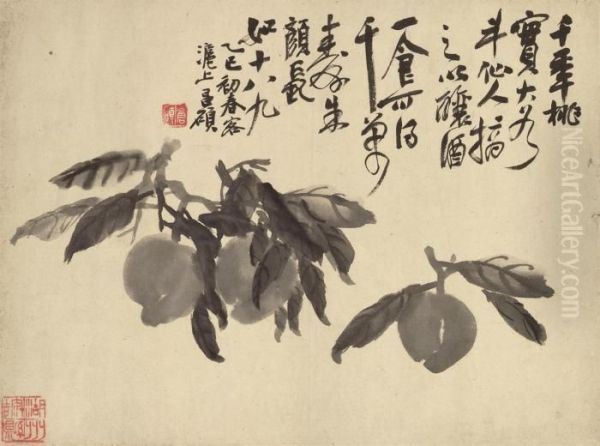 千年桃
實大
斗仙人摘
之以釀酒
一食可得
千萬
壽朱
顏長
如十八九
乙巳初春客
滬上昌碩
NiceArtGallery.com